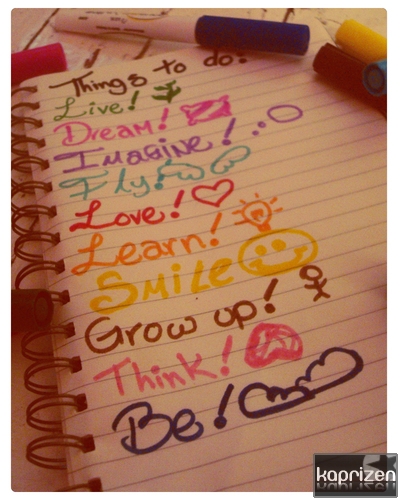 Things to do:
Live!
Dream!
Imagine!
Fly!
Love!
Learn!
SMiLe
Grow up!
Think!
Be!
kaprizen